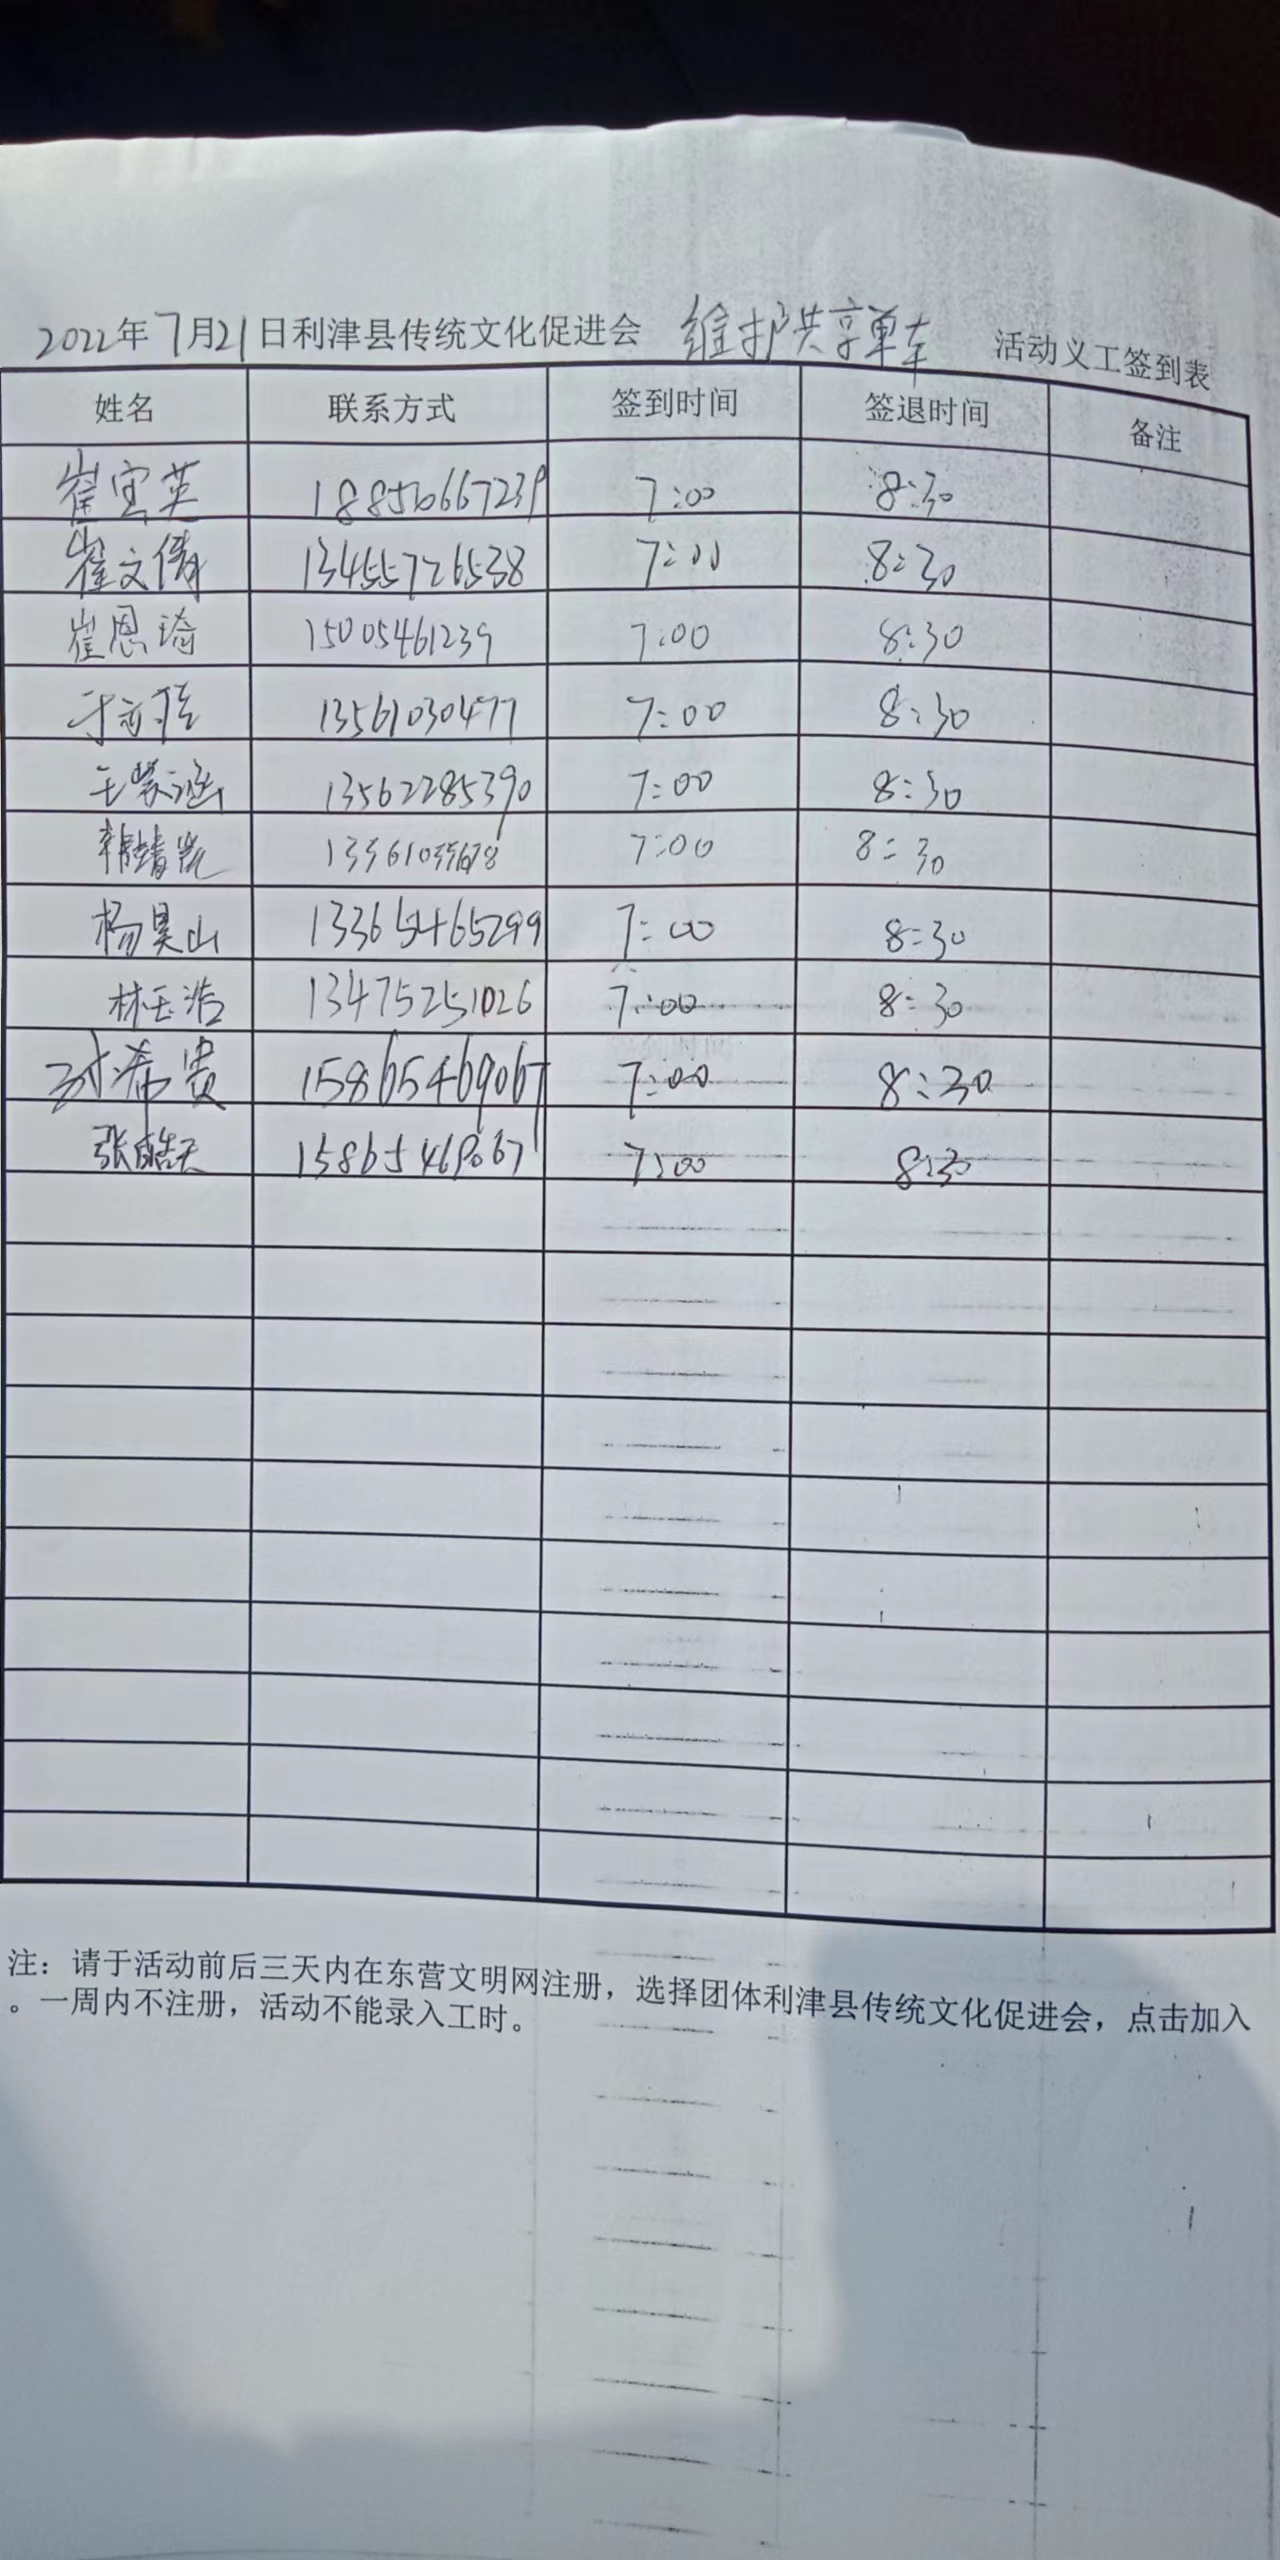 2022年7月21日利津县传统文化促进会 维护共享单车 活动义工签到表
姓名 联系方式 签到时间 签退时间 备注
崔宝英 7:00 8:30
崔文倩 13455726538 7:00 8:30
崔恩琦 15005461239 7:00 8:30
13561030477 7:00 8:30
王紫涵 13562285390 7:00 8:30
韩靖凯 7:00 8:30
杨昊山 13365465299 7:00 8:30
林玉浩 13475251026 7:00 8:30
希贵 15865469067 7:00 8:30
张皓天 15865469067 7:00 8:30
注：请于活动前后三天内在东营文明网注册，选择团体利津县传统文化促进会，点击加入
。一周内不注册，活动不能录入工时。